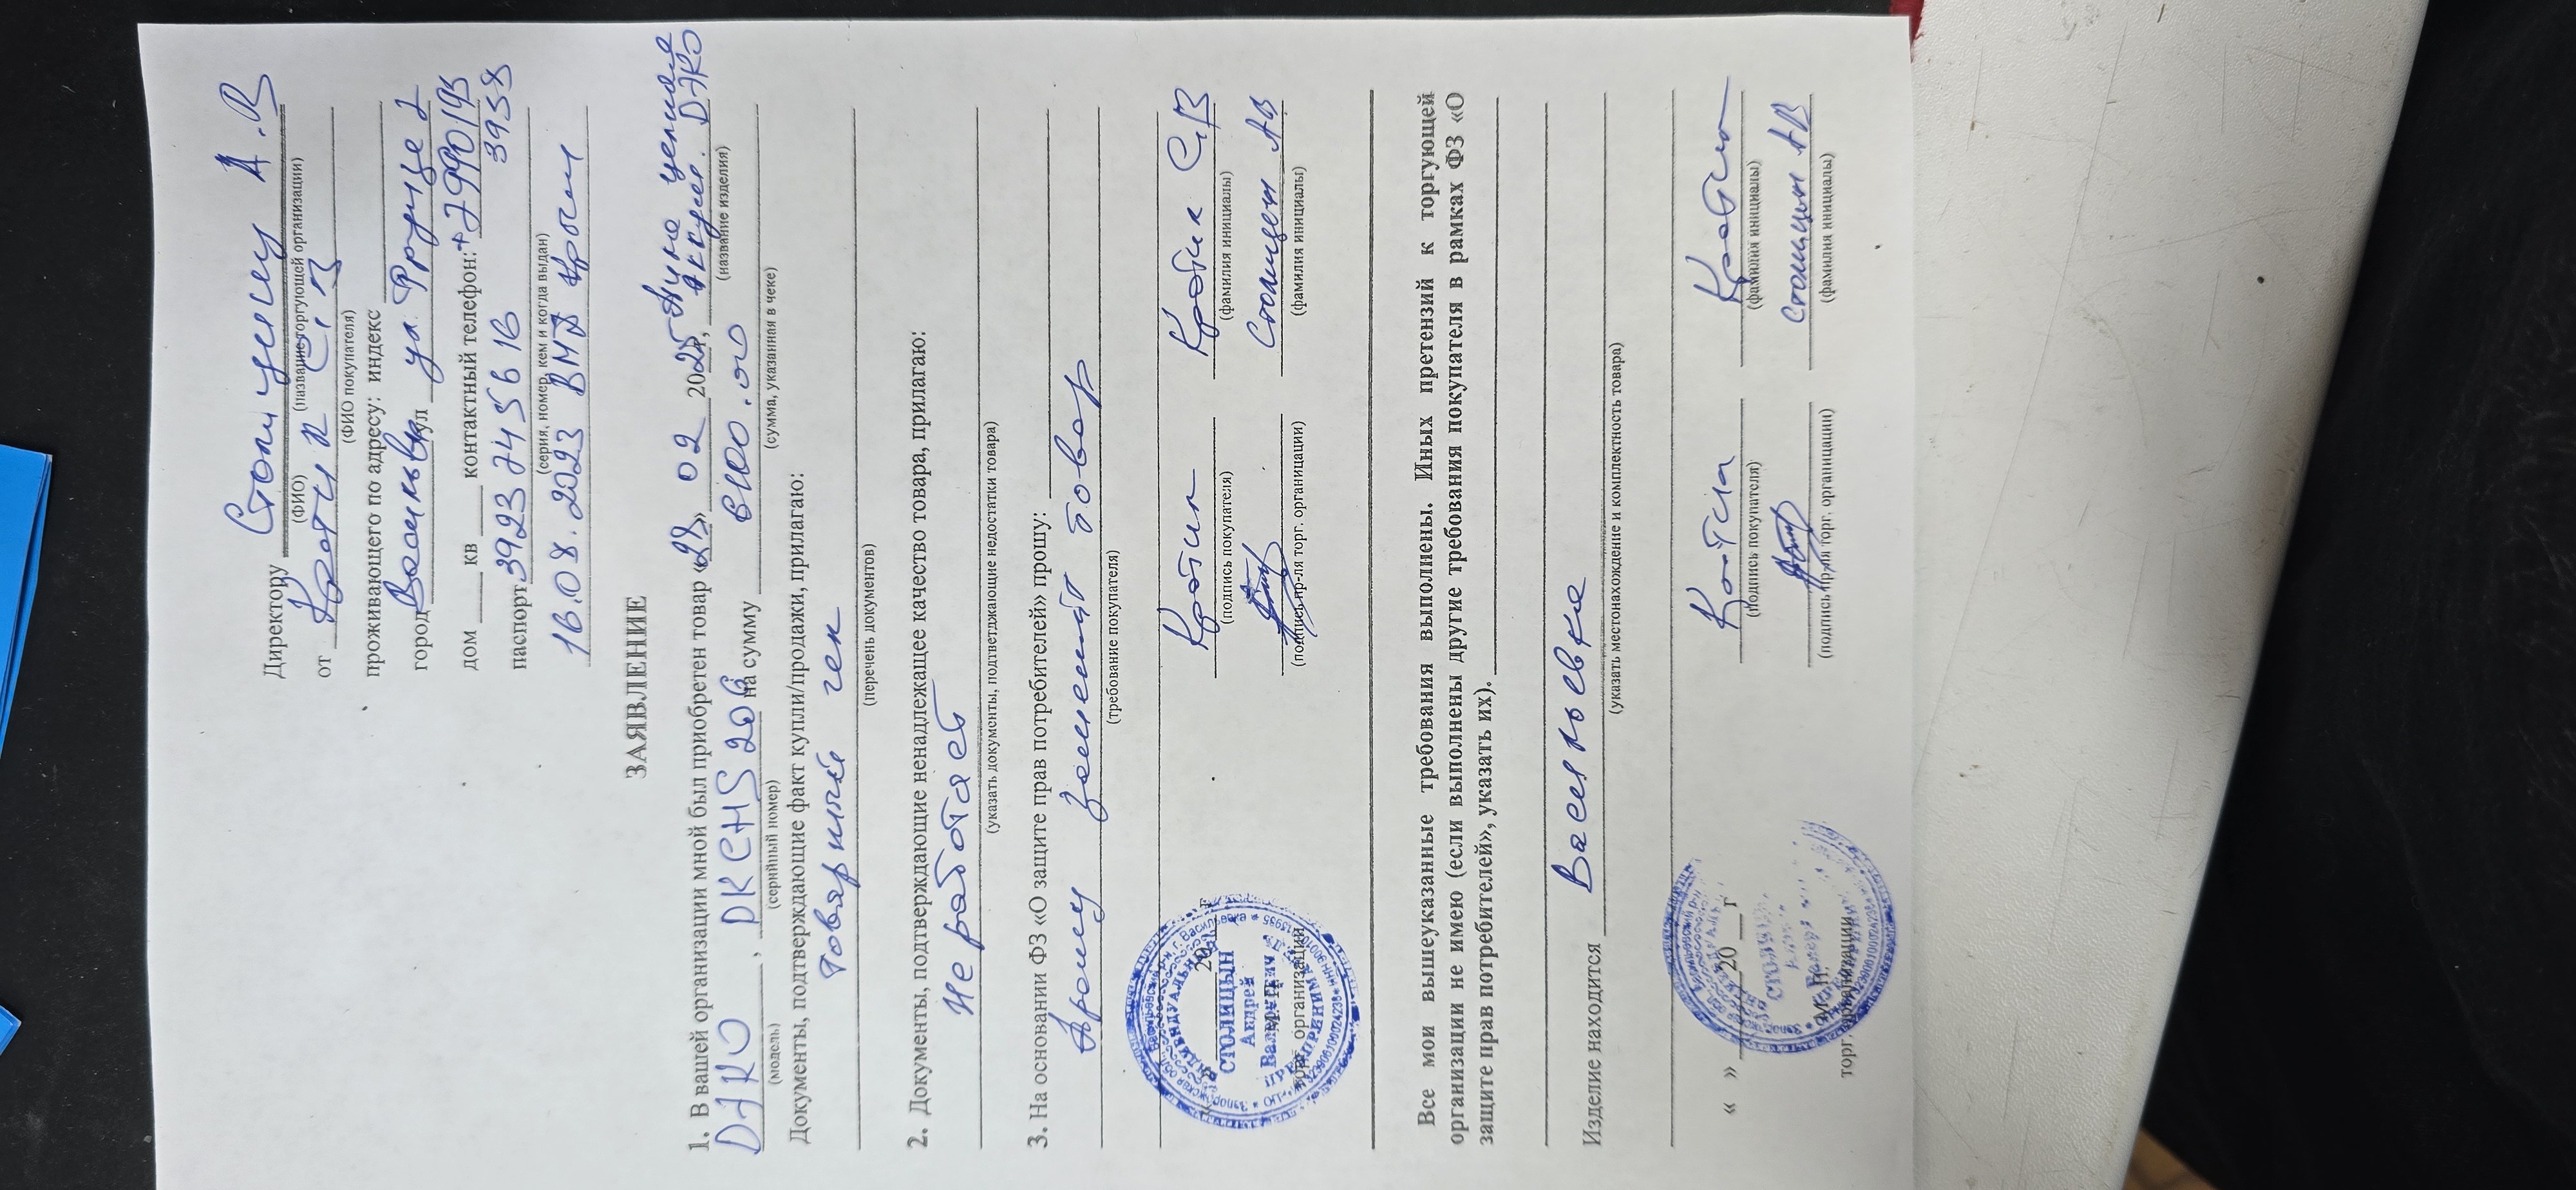 Директору Столицину А.В
(ФИО) (название торгующей организации)
от Кротик С.В
(ФИО покупателя)
проживающего по адресу: индекс
город Васильевка ул ул. Фрунзе 2
дом ___ кв ___ контактный телефон: +7990193
3958
паспорт 3923 745616
(серия, номер, кем и когда выдан)
16.08.2023 ВМД
ЗАЯВЛЕНИЕ
1. В вашей организации мной был приобретен товар «28» 02 2025, Пила цепная
аккум. DAKO
(название изделия)
DAKO, DKCHS206 на сумму 6100.00
(модель) (серийный номер) (сумма, указанная в чеке)
Документы, подтверждающие факт купли/продажи, прилагаю:
Товарный чек
(перечень документов)
2. Документы, подтверждающие ненадлежащее качество товара, прилагаю:
Не работает
(указать документы, подтветджающие недостатки товара)
3. На основании ФЗ «О защите прав потребителей» прошу:
Прошу заменить товар
(требование покупателя)
Кротик Кротик С.В
(подпись покупателя) (фамилия инициалы)
« » 20 г
Столицын АВ
(подпись пр-ля торг. организации) (фамилия инициалы)
М.П.
торг. организации
СТОЛИЦЫН
Андрей
Валериевич
Все мои вышеуказанные требования выполнены. Иных претензий к торгующей
организации не имею (если выполнены другие требования покупателя в рамках ФЗ «О
защите прав потребителей», указать их).
Изделие находится Васильевка
(указать местонахождение и комплектность товара)
« » 20 г
(подпись покупателя) (фамилия инициалы)
Столицын АВ
(подпись пр-ля торг. организации) (фамилия инициалы)
М.П.
торг. организации